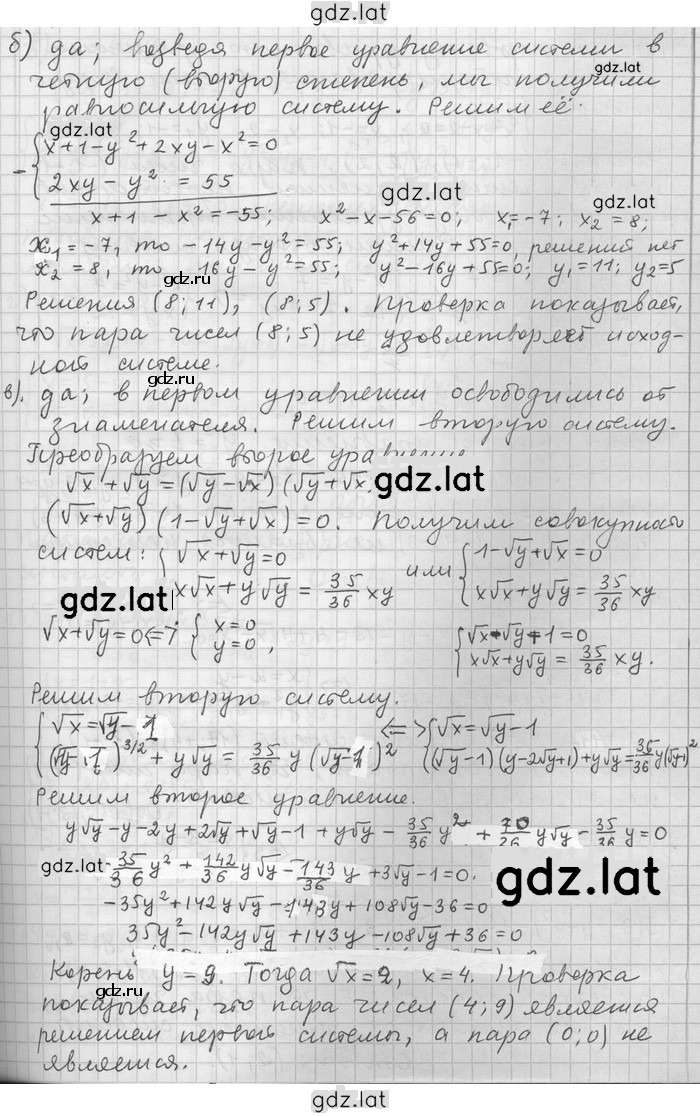 gdz.lat
б) да; возведя первое уравнение системы в
четную (вторую) степень, мы получим
gdz.lat
равносильную систему. Решим её.
gdz.lat
{x+1-y²+2xy-x²=0
- {2xy-y² = 55
gdz.lat
x+1 - x² = -55; x²-x-56=0; x₁=-7; x₂=8;
x₁=-7, то -14y-y²=55; y²+14y+55=0, решений нет
x₂=8, то 16y-y²=55; y²-16y+55=0; y₁=11; y₂=5
gdz.lat
Решения (8;11), (8;5). Проверка показывает,
что пара чисел (8;5) не удовлетворяет исход-
ной системе.
gdz.lat
в). да; в первом уравнении освободились от
знаменателя. Решим вторую систему.
Преобразуем второе
√x+√y=(√y-√x)(√y+√x
gdz.lat
(√x+√y)(1-√y+√x)=0. Получим совокупность
систем: {√x+√y=0 или {1-√y+√x=0
{x√x+y√y = 35/36 xy {x√x+y√y = 35/36 xy
gdz.lat
gdz.lat
√x+√y=0 <=> {x=0 {y=0, {√x-√y+1=0
{x√x+y√y = 35/36 xy.
Решим вторую систему.
{√x=√y-1 <=> {√x=√y-1
{(√y-1)^3/2+y√y = 35/36 y(√y-1)² {(√y-1)(y-2√y+1)+y√y=36/36 y(√y-1)²
Решим второе уравнение.
y√y-y-2y+2√y+√y-1+y√y-35/36 y²+70/36 y√y-35/36 y=0
gdz.lat
-35/36 y²+142/36 y√y-143/36 y+3√y-1=0.
gdz.lat
-35y²+142y√y-143y+108√y-36=0
35y²-142y√y+143y-108√y+36=0
Корень y=9. Тогда √x=2, x=4. Проверка
gdz.lat
показывает, что пара чисел (4;9) является
решением первой системы, а пара (0;0) не
является.
gdz.lat